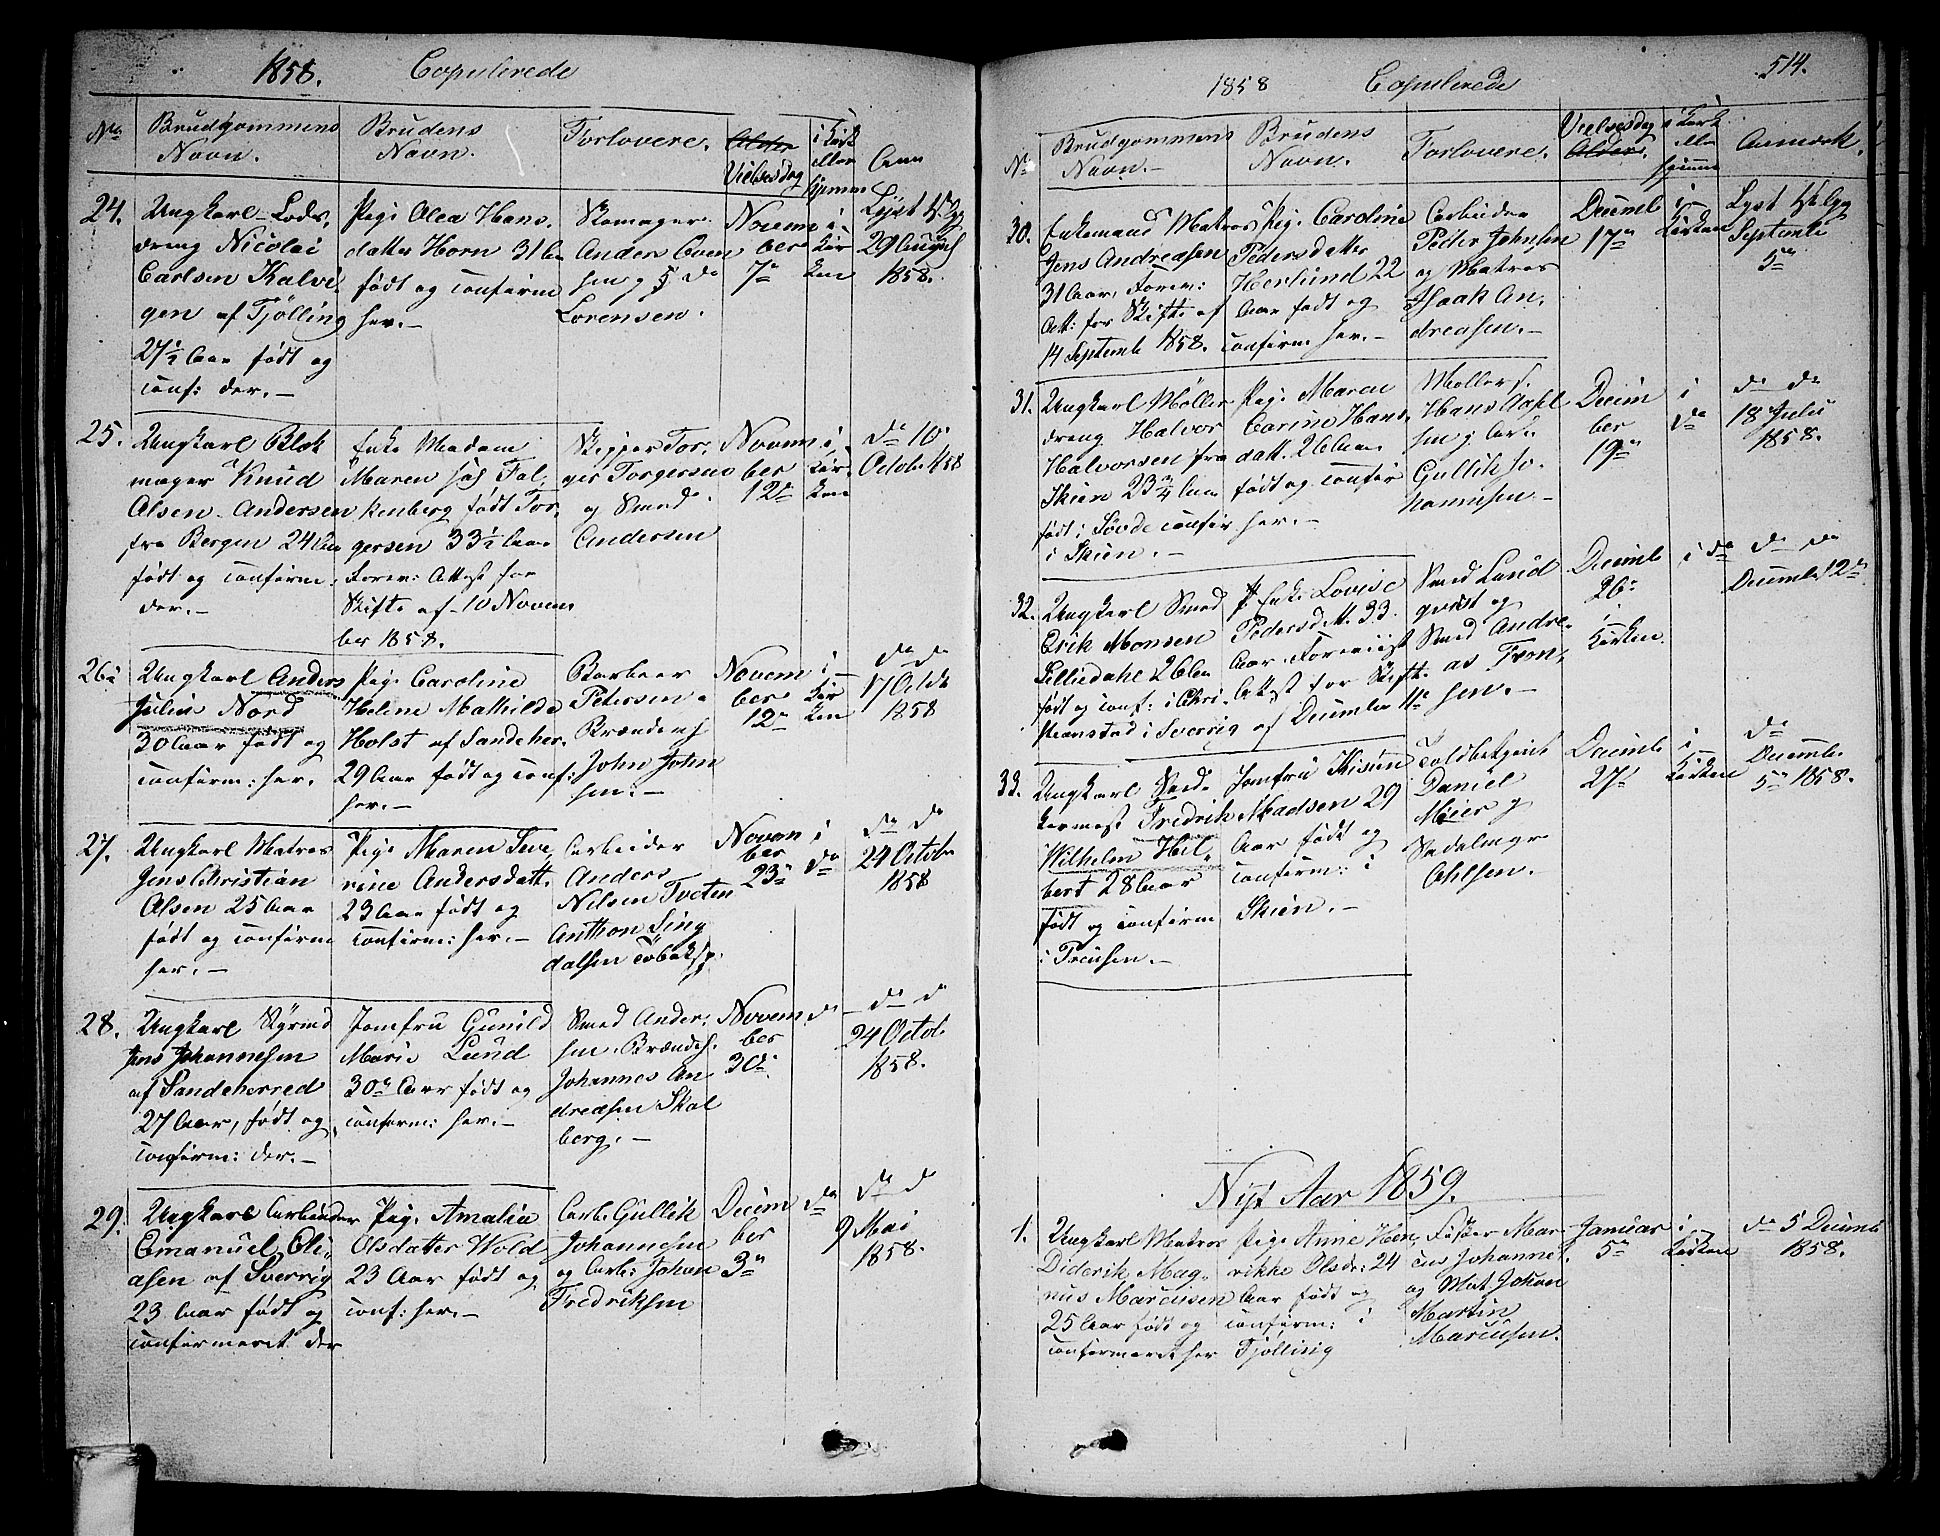 1858. Copulerede
No Brudgommens Navn. Brudens Navn. Forlovere. Alder Vielsesdag i Kirk eller hjemme Anm
24. Ungkarl Lods
dreng Nicolai
Carlsen Kalvi
gen af Tjølling
27½ Aar født og
conf: der.
Pige Olea Hans
datter Horn 31 Aar
født og confirm
her.
Skomager
Anders Even
sen g
Lorensen.
Novem
ber
7de
i
Kir
ken
Lyst Helg
29 August
1858.
25. Ungkarl Blok
mager Knud
Olsen Andersen
fra Bergen 24 Aar
født og confirm
der.
Enke Madam
Maren
Fal
kenberg født Tor
gersen 33½ Aar
Forev: Attest for
Skifte af 10 Novem
ber 1858.
Skipper Tor
ger Torgersen
og Smed
Andersen
Novem
ber
12te
i
Kir
ken
do 10
Octob. 1858
26. Ungkarl Anders
Julin Nord
30 Aar født og
confirm: her.
Pige Caroline
Heline Mathilde
Holst af Sandeher.
29 Aar født og conf:
her.
Barbeer
Petersen
Brændevs
John John
sen.
Novem
ber
12te
i
Kir
ken
do do
17 Octb
1858
27. Ungkarl Matros
Jens Christian
Olsen 25 Aar
født og confirm
her.
Pige Maren Seve
rine Andersdatt.
23 Aar født og
confirm: her.
Arbeider
Anders
Nilsen Tveten
Anthon Ling
dalsen Tobaksp.
Novem
ber
23de
i
do
do do
24 Octob
1858
28. Ungkarl Styrmd
Jens Johannesen
af Sandeherred
27 Aar, født og
confirm: der.
Jomfru Gunild
Marie Lund
30 Aar født og
confirm: her.
Smed Ander
sen Brændev.
Johannes An
dreasen Skal
berg.
Novem
ber
30te
do
do do
24 Octob.
1858.
29. Ungkarl Arbeider
Emanuel Eli
asen af Sverrig
23 Aar født og
confirmeret der
Pige Amalia
Olsdatter Wold
23 Aar født og
conf: her.
Arb. Gullik
Johannesen
og Arb: Johan
Fredriksen
Decem
ber
3de
do
do do
9 Mai
1858.
1858 Copulerede 514.
No Brudgommens Navn. Brudens Navn. Forlovere. Vielsesdag Alder. i Kirk eller hjemme Anmærk.
30. Enkemand Matros
Jens Andreasen
31 Aar, Forev:
Att: for Skifte af
14 Septemb 1858.
Pige Caroline
Pedersdatter
Herlund 22
Aar født og
confirm her.
Arbeider
Peder Johnsen
og Matros
Isaak An
dreasen.
Decemb
17de
i
Kirken
Lyst Helg
Septembr
5te
31. Ungkarl Møller
dreng Halvor
Halvorsen fra
Skien 23¾ Aar
født i Søvde confir
i Skien.
Pige Maren
Carine Hans
datt. 26 Aar
født og confir
her.
Møllers.
Hans
sen g Arb.
Gullik Jo
hannesen
Decem
ber
19de
i
do
do do
18 Juli
1858.
32. Ungkarl Smed
Erik Monsen
Lilliedahl 26 Aar
født og conf: i Chri
stianstad i Sverrig
Enke Lovise
Pedersdatt. 33
Aar. Foreviist
Attest for Skifte
af December 11te
Smed Lund
qvist og
Smed Andre
as Tron
sen.
Decemb
26de
i
Kirken.
i do
do do
Decembr 12te
33. Ungkarl
kermest Fredrik
Wilhelm Hil
bert 28 Aar
født og confirm
i Preusen.
Jomfru
Madsen 29
Aar født og
confirm: i
Skien.
Toldbetjent
Daniel
Meier g
Sadelmgr
Ohlsen.
Decemb
27de
i
Kirken
do
Decemb.
5te 1858.
Nyt Aar 1859.
1. Ungkarl Matros
Diderik Mag
nus Marcusen
25 Aar født og
confirmeret her
Pige Anne Hen
rikke Olsdr: 24
Aar født og
confirm: i
Tjølling
Fisker Mar
cus Johannes.
og Mat Johan
Martin
Marcusen.
Januar
5te
i
Kirken
do 5 Decemb
1858.